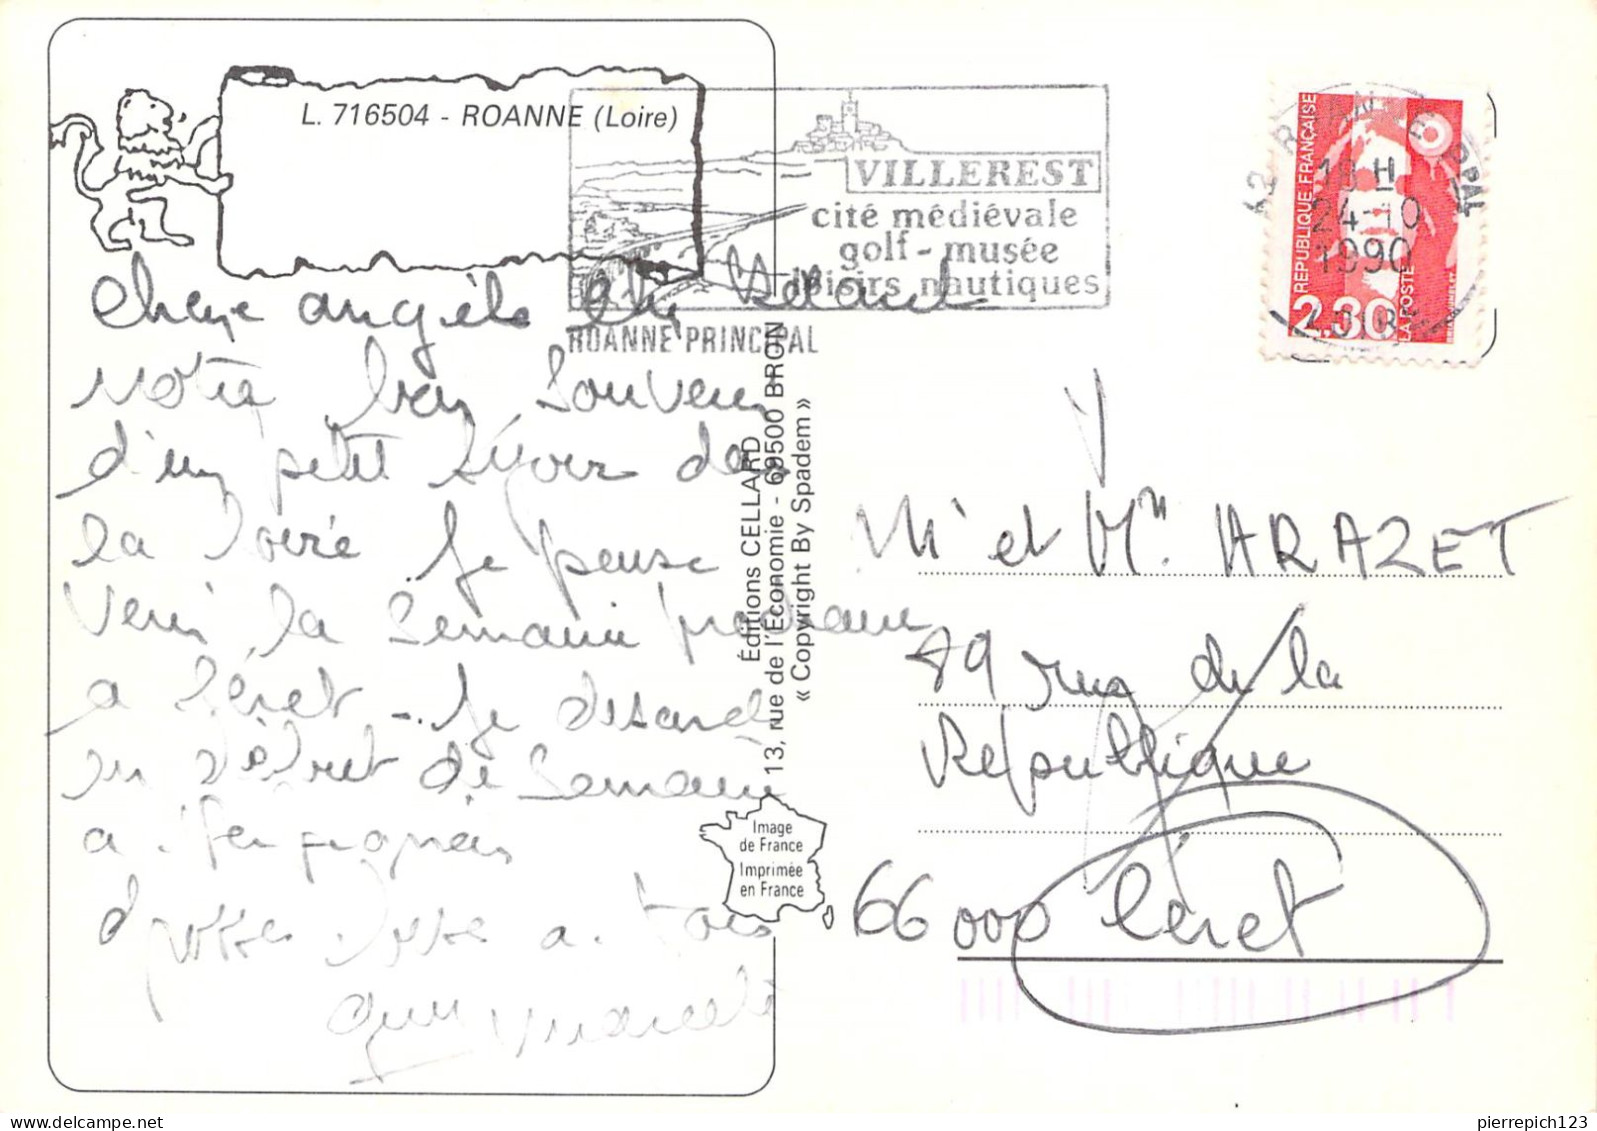 L. 716504 - ROANNE (Loire)
VILLEREST
cité médiévale
golf - musée
loisirs nautiques
ROANNE PRINCIPAL
42 ROANNE PPAL
18 H
24-10
1990
LOIRE
RÉPUBLIQUE FRANÇAISE
2.30
LA POSTE
Chère angèle
Notre bon souvenir
d'un petit séjour dans
la Loire Je pense
venir la Semaine prochaine
a Céret - Je
en début de Semaine
a Perpignan
grosses bises a tous
Éditions CELLARD
13, rue de l'Économie - 69500 BRON
« Copyright By Spadem »
Image
de France
Imprimée
en France
Mr et Mme HARAZET
49 rue de la
République
66000 Céret
pierrepich123